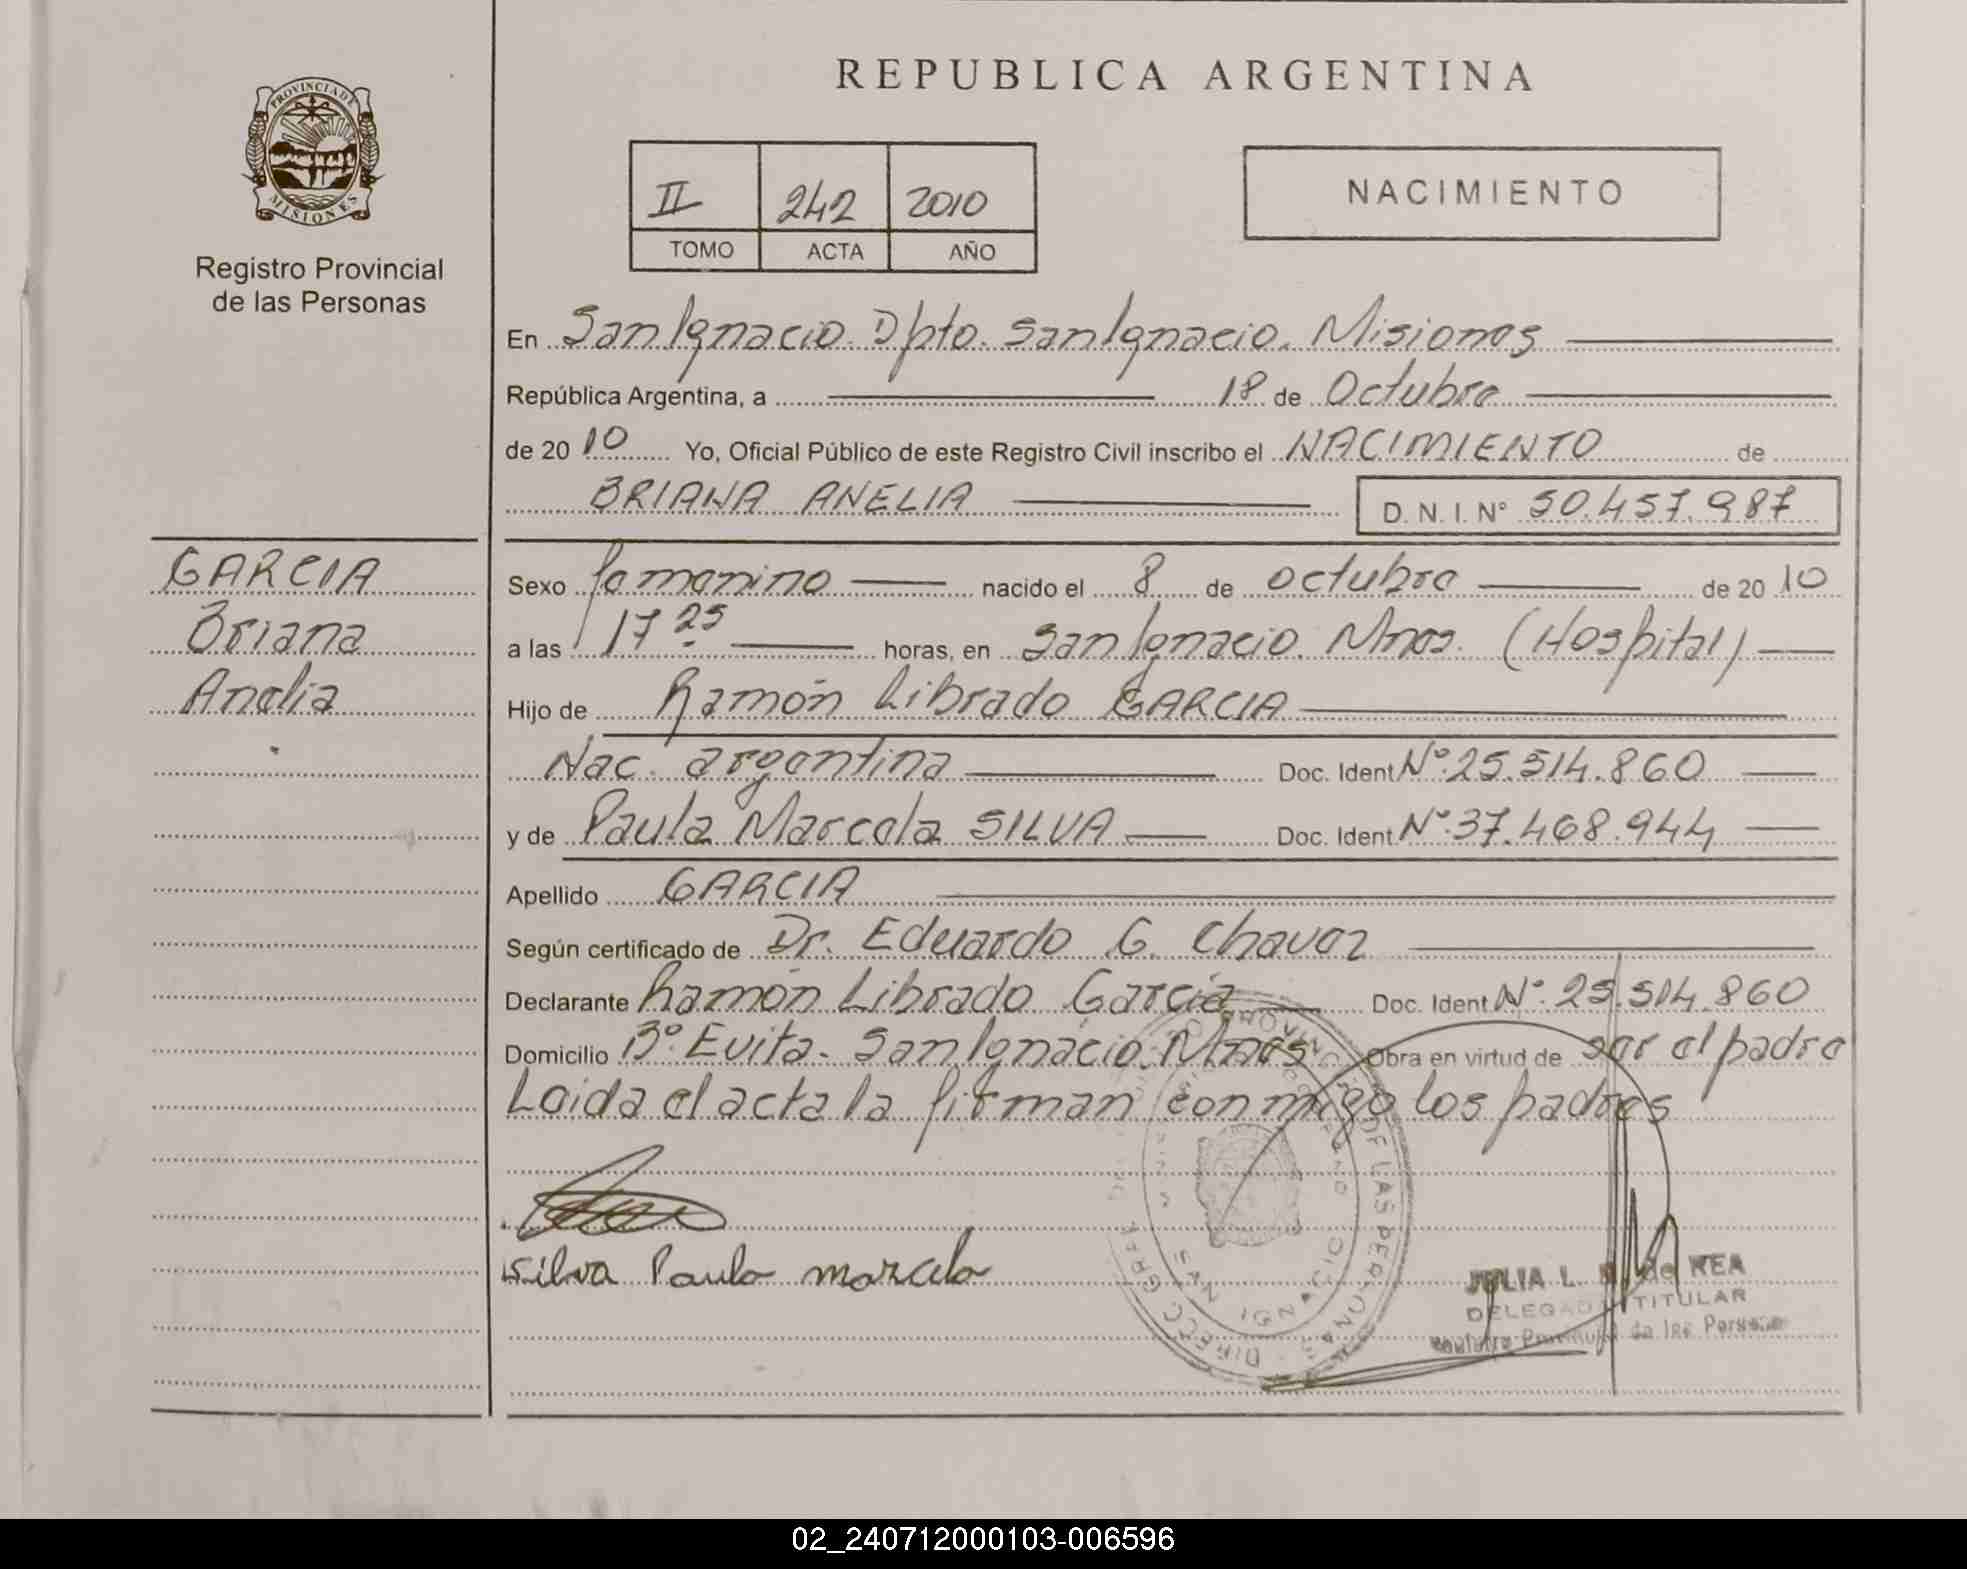 REPUBLICA ARGENTINA
PROVINCIA DE
MISIONES
Registro Provincial
de las Personas
II 242 2010
TOMO ACTA AÑO
NACIMIENTO
En San Ignacio. Dpto. San Ignacio. Misiones
República Argentina, a 18 de Octubre
de 2010 Yo, Oficial Público de este Registro Civil inscribo el NACIMIENTO de
BRIANA ANELIA D. N. I. N° 50.457.987
GARCIA
Briana
Anelia
Sexo femenino nacido el 8 de octubre de 2010
a las 17 25 horas, en San Ignacio. Mnes. (Hospital)
Hijo de Ramón Librado GARCIA
Nac. argentina Doc. Ident N° 25.514.860
y de Paula Marcela SILVA Doc. Ident N° 37.468.944
Apellido GARCIA
Según certificado de Dr. Eduardo G. Chavez
Declarante Ramón Librado García Doc. Ident N° 25.514.860
Domicilio B° Evita. San Ignacio. Mnes Obra en virtud de ser el padre
Leida el acta la firman conmigo los padres
Silva Paula marcela
SAN IGNACIO
JULIA L. de REA
DELEGADA TITULAR
Registro Provincial de las Personas
02_240712000103-006596